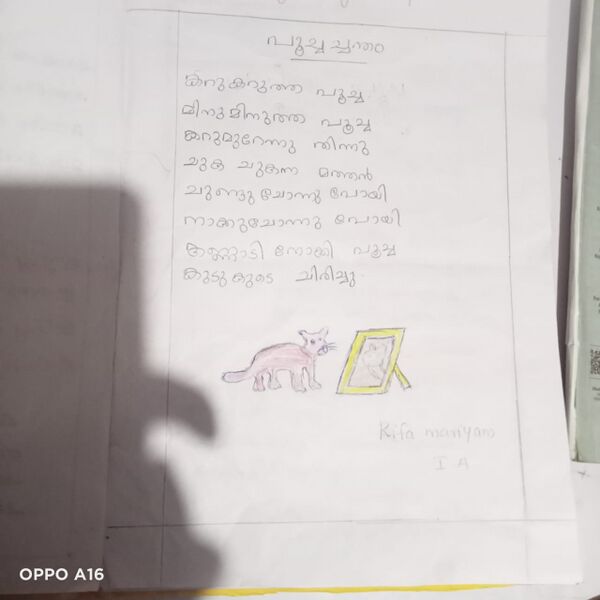 പൂച്ചച്ചന്തം
കറുകറുത്ത പൂച്ച
മിനുമിനുത്ത പൂച്ച
കറുമുറേന്നു തിന്നു
ചുക ചുകന്ന മത്തൻ
ചുണ്ടുചോന്നു പോയി
നാക്കുചോന്നു പോയി
കണ്ണാടി നോക്കി പൂച്ച
കുടുകുടെ ചിരിച്ചു.
Rifa mariyam
I A
OPPO A16